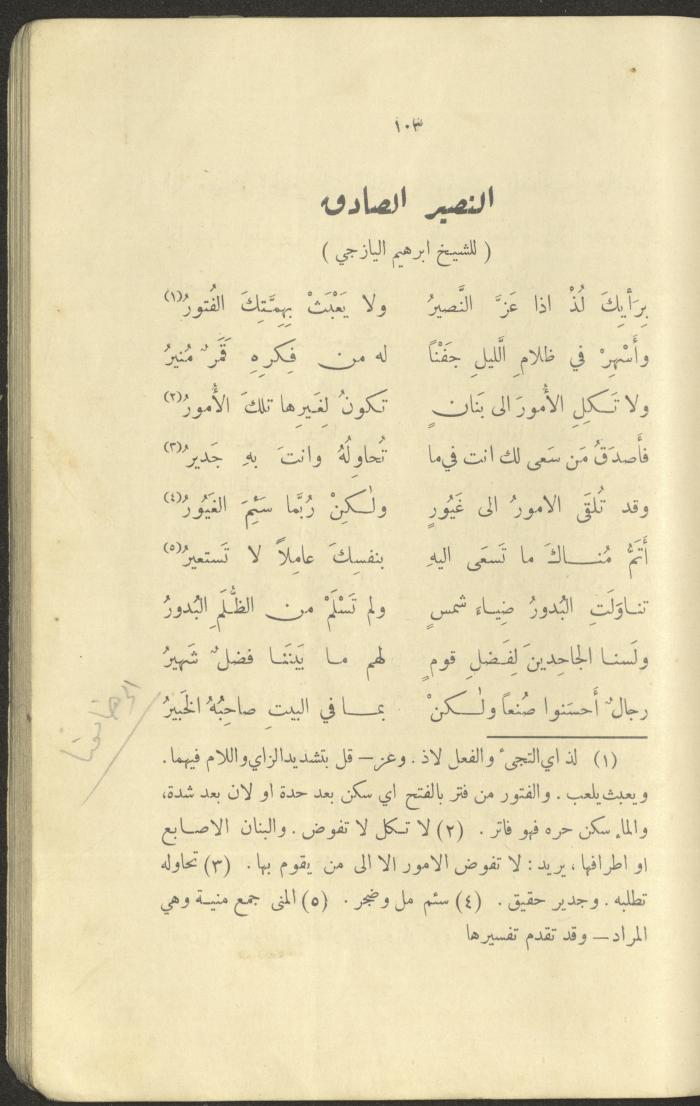 ١٠٣
النصير الصادق
( للشيخ ابرهيم اليازجي )
بِرَأيِكَ لُذْ اذا عَزَّ النَّصيرُ ولا يَعْبَثْ بِهِمَّتِكَ الفُتورُ(١)
وأَسْهِرْ في ظلامِ الَّليلِ جَفْنًا له من فِكرِهِ قَمَرٌ مُنيرُ
ولا تَكلِ الأُمورَ الى بَنانٍ تكونُ لِغَيرِها تلكَ الأُمورُ(٢)
فأَصدَقُ مَن سَعى لك انت في ما تُحاوِلُهُ وانتَ بهِ جَديرُ(٣)
وقد تُلقَى الامورُ الى غَيُورٍ ولٰكِنْ رُبَّما سَئِمَ الغَيُورُ(٤)
أَتَمُّ مُناكَ ما تَسعَى اليهِ بنفسِكَ عاملاً لا تَستعيرُ(٥)
تناوَلَتِ البُدورُ ضِياءَ شمسٍ ولم تَسْلَمْ من الظُّلَمِ البُدورُ
ولَسنا الجاحِدينَ لِفَضلِ قومٍ لهم ما بَينَنا فضلٌ شَهيرُ
رجالٌ أَحسَنوا صُنعاً ولٰكنْ بما في البيتِ صاحِبُهُ الخَبيرُ
(١) لذ اي التجئ والفعل لاذ . وعز — قل بتشديد الزاي واللام فيهما .
ويعبث يلعب . والفتور من فتر بالفتح اي سكن بعد حدة او لان بعد شدة،
والماء سكن حره فهو فاتر . (٢) لا تكل لا تفوض . والبنان الاصابع
او اطرافها ، يريد : لا تفوض الامور الا الى من يقوم بها . (٣) تحاوله
تطلبه . وجدير حقيق . (٤) سئم مل وضجر . (٥) المنى جمع منية وهي
المراد — وقد تقدم تفسيرها